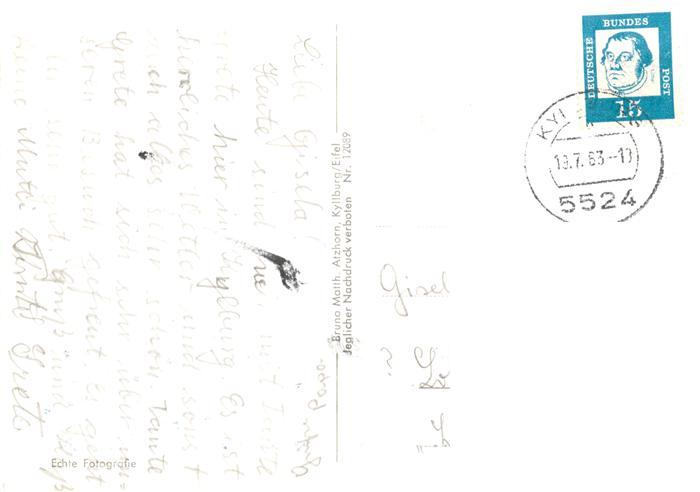 Liebe Gisela!
Heute sind wir mit Tante
Grete hier in Kyllburg. Es ist
herrliches Wetter und sonst
auch alles sehr schön. Tante
Grete hat sich sehr über un-
sern Besuch gefreut. Es geht
ihr sehr gut. Gruß und Kuß
deine Mutti
Tante Grete
Papa
Bruno Matth. Atzhorn, Kyllburg/Eifel
Jeglicher Nachdruck verboten Nr. 12089
Echte Fotografie
DEUTSCHE BUNDES POST
15
KYL
19.7.63-1
5524
Gisel